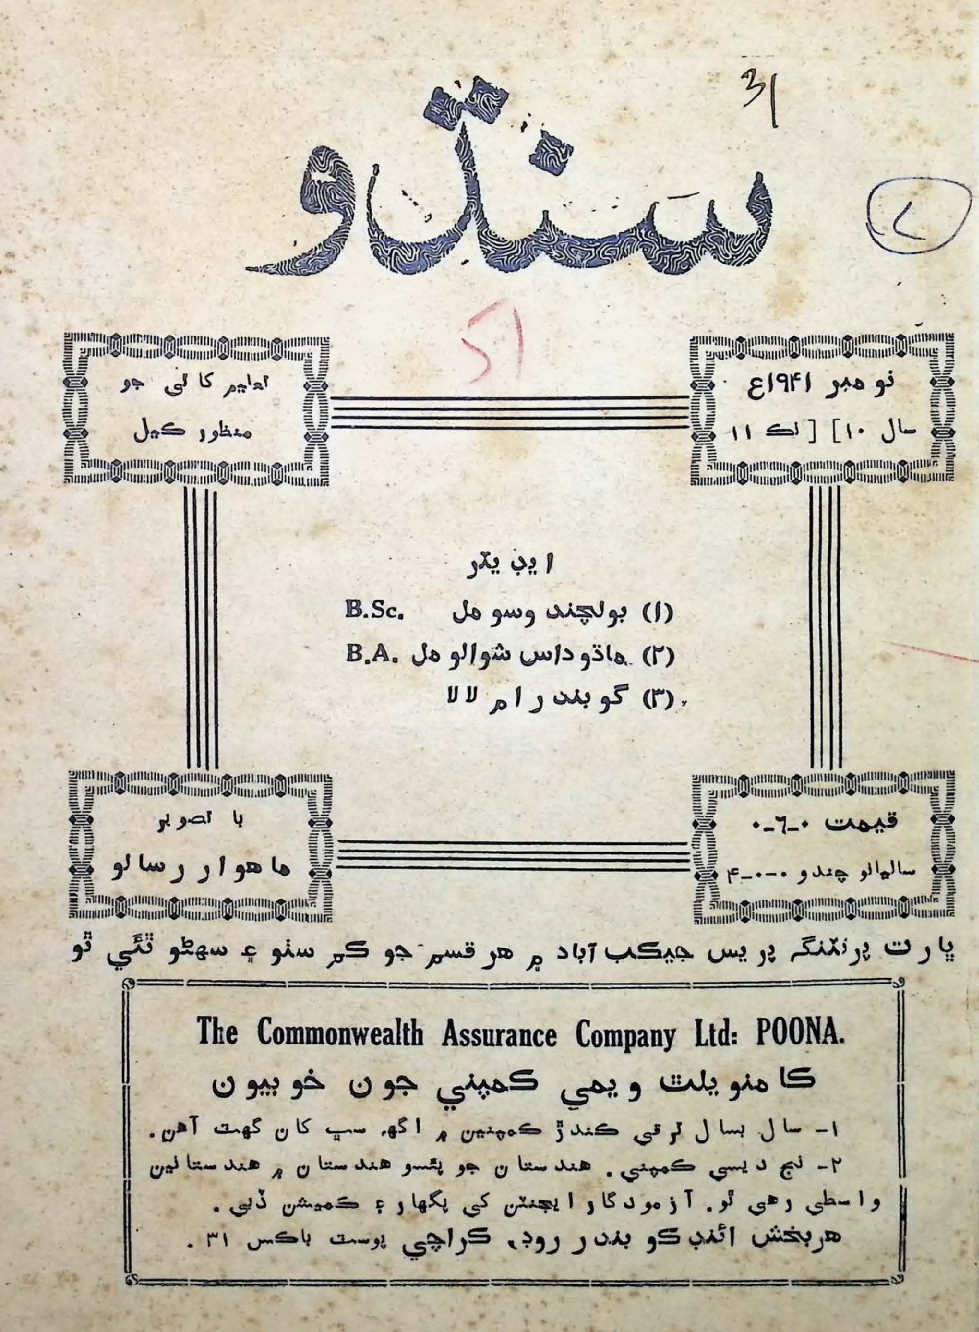 31
سنڌو
7
31
نومبر ۱۹۴۱ع
سال ۱۰] [نڪ ۱۱
تعليم کاتي جو
منظور ڪيل
ايڊيٽر
(۱) بولچند وسومل B.Sc.
(۲) ماڌوداس شوالومل B.A.
(۳) گوبندرام لالا
قيمت ۰-٦-۰
ساليانو چندو ۰-۰-۴
با تصوير
ماهوار رسالو
ڀارت پرنٽنگ پريس جيڪب آباد ۾ هر قسم جو ڪم سٺو ۽ سهڻو ٿئي ٿو
The Commonwealth Assurance Company Ltd: POONA.
ڪامنويلٿ ويمي ڪمپني جون خوبيون
۱- سال بسال ترقي ڪندڙ ڪمپنين ۾ اگھ سڀ کان گهٽ آهن.
۲- نج ديسي ڪمپني. هندستان جو پئسو هندستان ۾ هندستانين
واسطي رهي ٿو. آزمودگار ايجنٽن کي پگهار ۽ ڪميشن ڏبي.
هربخش ائنڊ ڪو بندر روڊ، ڪراچي پوسٽ باڪس ۳۱.